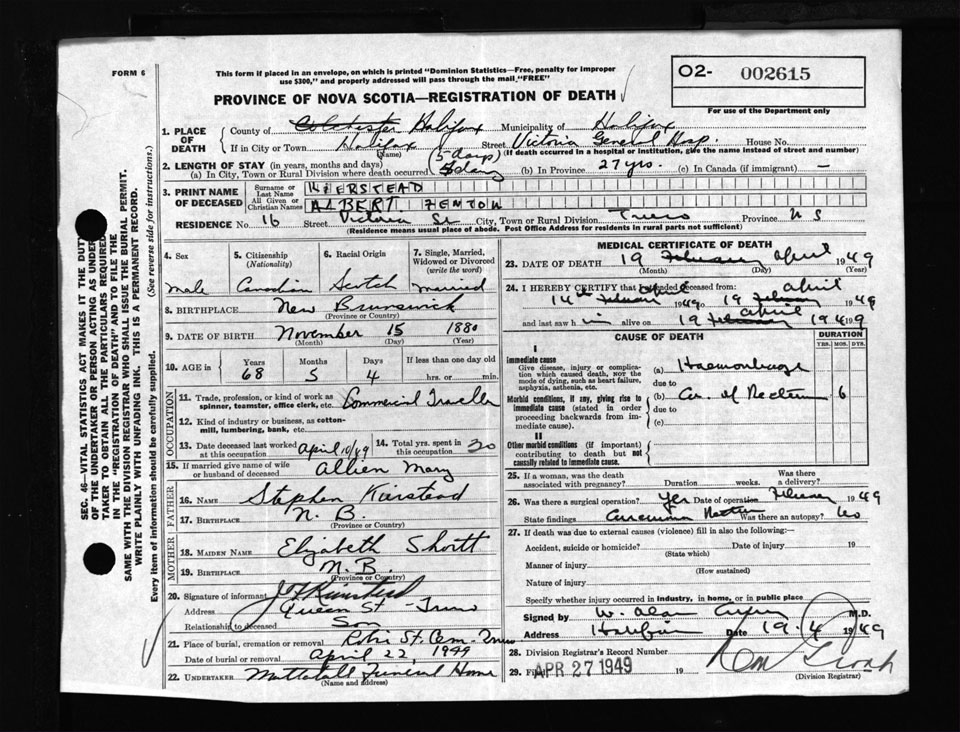 FORM 6
This form if placed in an envelope, on which is printed "Dominion Statistics—Free, penalty for improper
use $300," and properly addressed will pass through the mail, "FREE"
O2- 002615
For use of the Department only
PROVINCE OF NOVA SCOTIA—REGISTRATION OF DEATH
1. PLACE OF DEATH
County of Colchester Halifax Municipality of Halifax
If in City or Town Halifax Street Victoria General Hosp. House No.
(Name) (If death occurred in a hospital or institution, give the name instead of street and number)
2. LENGTH OF STAY (in years, months and days)
(a) In City, Town or Rural Division where death occurred (5 days) (b) In Province 27 yrs. (c) In Canada (if immigrant) —
3. PRINT NAME OF DECEASED
Surname or Last Name KIERSTEAD
All Given or Christian Names ALBERT FENTON
RESIDENCE No. 16 Street Victoria St City, Town or Rural Division Truro Province N S
(Residence means usual place of abode. Post Office Address for residents in rural parts not sufficient)
4. Sex
male
5. Citizenship (Nationality)
Canadian
6. Racial Origin
Scotch
7. Single, Married, Widowed or Divorced (write the word)
married
8. BIRTHPLACE New Brunswick
(Province or Country)
9. DATE OF BIRTH November 15 1880
(Month) (Day) (Year)
10. AGE in Years 68 Months 5 Days 4 If less than one day old
hrs. or min.
OCCUPATION
11. Trade, profession, or kind of work as spinner, teamster, office clerk, etc. Commercial Traveller
12. Kind of industry or business, as cotton-mill, lumbering, bank, etc.
13. Date deceased last worked at this occupation April 10/49 14. Total yrs. spent in this occupation 30
15. If married give name of wife or husband of deceased Allien Mary
FATHER
16. Name Stephen Kierstead
17. Birthplace N. B.
(Province or Country)
MOTHER
18. Maiden Name Elizabeth Shortt
19. Birthplace N. B.
(Province or Country)
20. Signature of informant Kierstead
Address Queen St - Truro
Relationship to deceased Son
21. Place of burial, cremation or removal Robie St. Cem. Truro
Date of burial or removal April 22, 1949
22. Undertaker Mattatall Funeral Home
(Name and address)
MEDICAL CERTIFICATE OF DEATH
23. DATE OF DEATH 19 February April 1949
(Month) (Day) (Year)
24. I HEREBY CERTIFY that I attended deceased from:
14th February April 1949 to 19 February April 1949
and last saw him alive on 19 February April 1949
CAUSE OF DEATH
DURATION
YRS. MOS. DYS.
I
Immediate cause
Give disease, injury or complication which caused death, NOT the mode of dying, such as heart failure, asphyxia, asthenia, etc.
(a) Haemorrhage
due to
Morbid conditions, if any, giving rise to immediate cause (stated in order proceeding backwards from immediate cause).
(b) Car. of Rectum 6
due to
(c)
II
Other morbid conditions (if important) contributing to death but not causally related to immediate cause.
25. If a woman, was the death associated with pregnancy? Duration weeks. Was there a delivery?
26. Was there a surgical operation? yes Date of operation February 1949
State findings Carcinoma Rectum Was there an autopsy? no
27. If death was due to external causes (violence) fill in also the following:—
Accident, suicide or homicide? Date of injury 19
(State which)
Manner of injury
(How sustained)
Nature of injury
Specify whether injury occurred in industry, in home, or in public place
Signed by W. Alan M.D.
Address Halifax Date 19 - 4 1949
28. Division Registrar's Record Number
29. Filed APR 27 1949 19
(Division Registrar)
SEC. 46—VITAL STATISTICS ACT MAKES IT THE DUTY
OF THE UNDERTAKER OR PERSON ACTING AS UNDER-
TAKER TO OBTAIN ALL THE PARTICULARS REQUIRED
IN THE "REGISTRATION OF DEATH" AND TO FILE THE
SAME WITH THE DIVISION REGISTRAR WHO SHALL ISSUE THE BURIAL PERMIT.
WRITE PLAINLY WITH UNFADING INK. THIS IS A PERMANENT RECORD.
Every item of information should be carefully supplied. (See reverse side for instructions.)